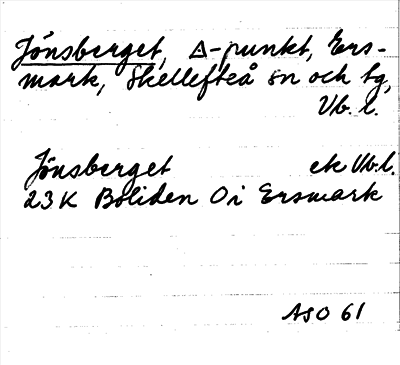 Jönsberget, △-punkt, Ers-
mark, Skellefteå sn och tg,
Vb. l.
Jönsberget ek Vb. l.
23K Boliden 0i Ersmark
ASO 61